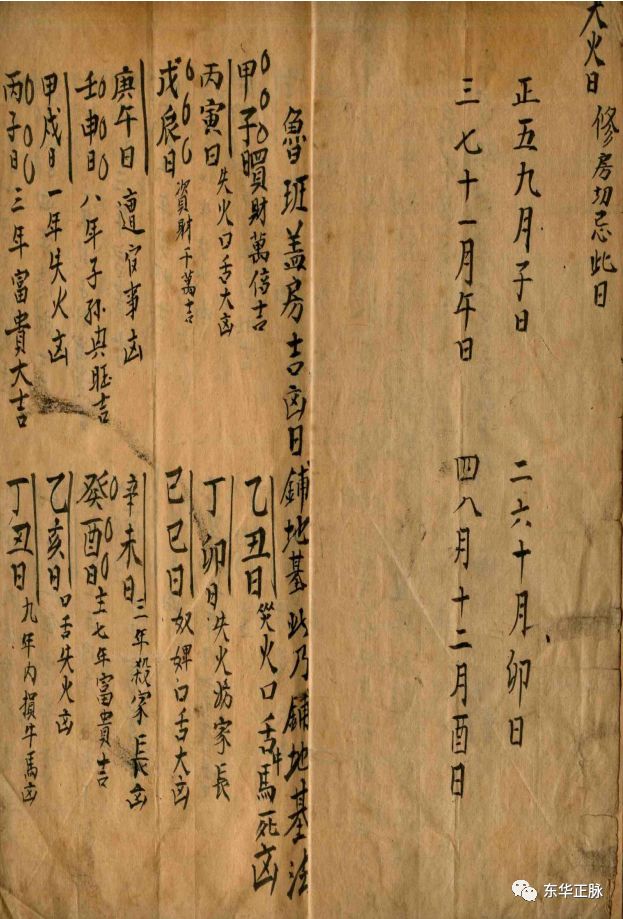 天火日 修房切忌此日
正五九月子日 二六十月卯日
三七十一月午日 四八月十二月酉日
魯班盖房吉凶日鋪地基此乃鋪地基法
甲子日買財萬倍吉 乙丑日災火口舌牛馬死凶
丙寅日失火口舌大凶 丁卯日失火妨家長
戊辰日資財千萬吉 己巳日奴婢口舌大凶
庚午日遭官事凶 辛未日三年殺家長凶
壬申日八年子孫興旺吉 癸酉日主七年富貴吉
甲戌日一年失火凶 乙亥日口舌失火凶
丙子日三年富貴大吉 丁丑日九年內損牛馬凶
东华正脉